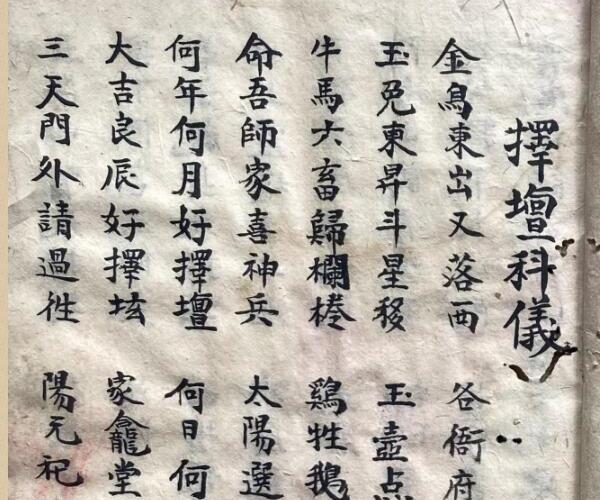 擇壇科儀
金鳥東出又落西 各衙府
玉免東昇斗星移 玉壺点
牛馬六畜歸欄 鷄牲鵝
命吾師家喜神兵 太陽選
何年何月好擇壇 何日何
大吉良辰好擇 家龕堂
三天門外請過徃 陽元祀